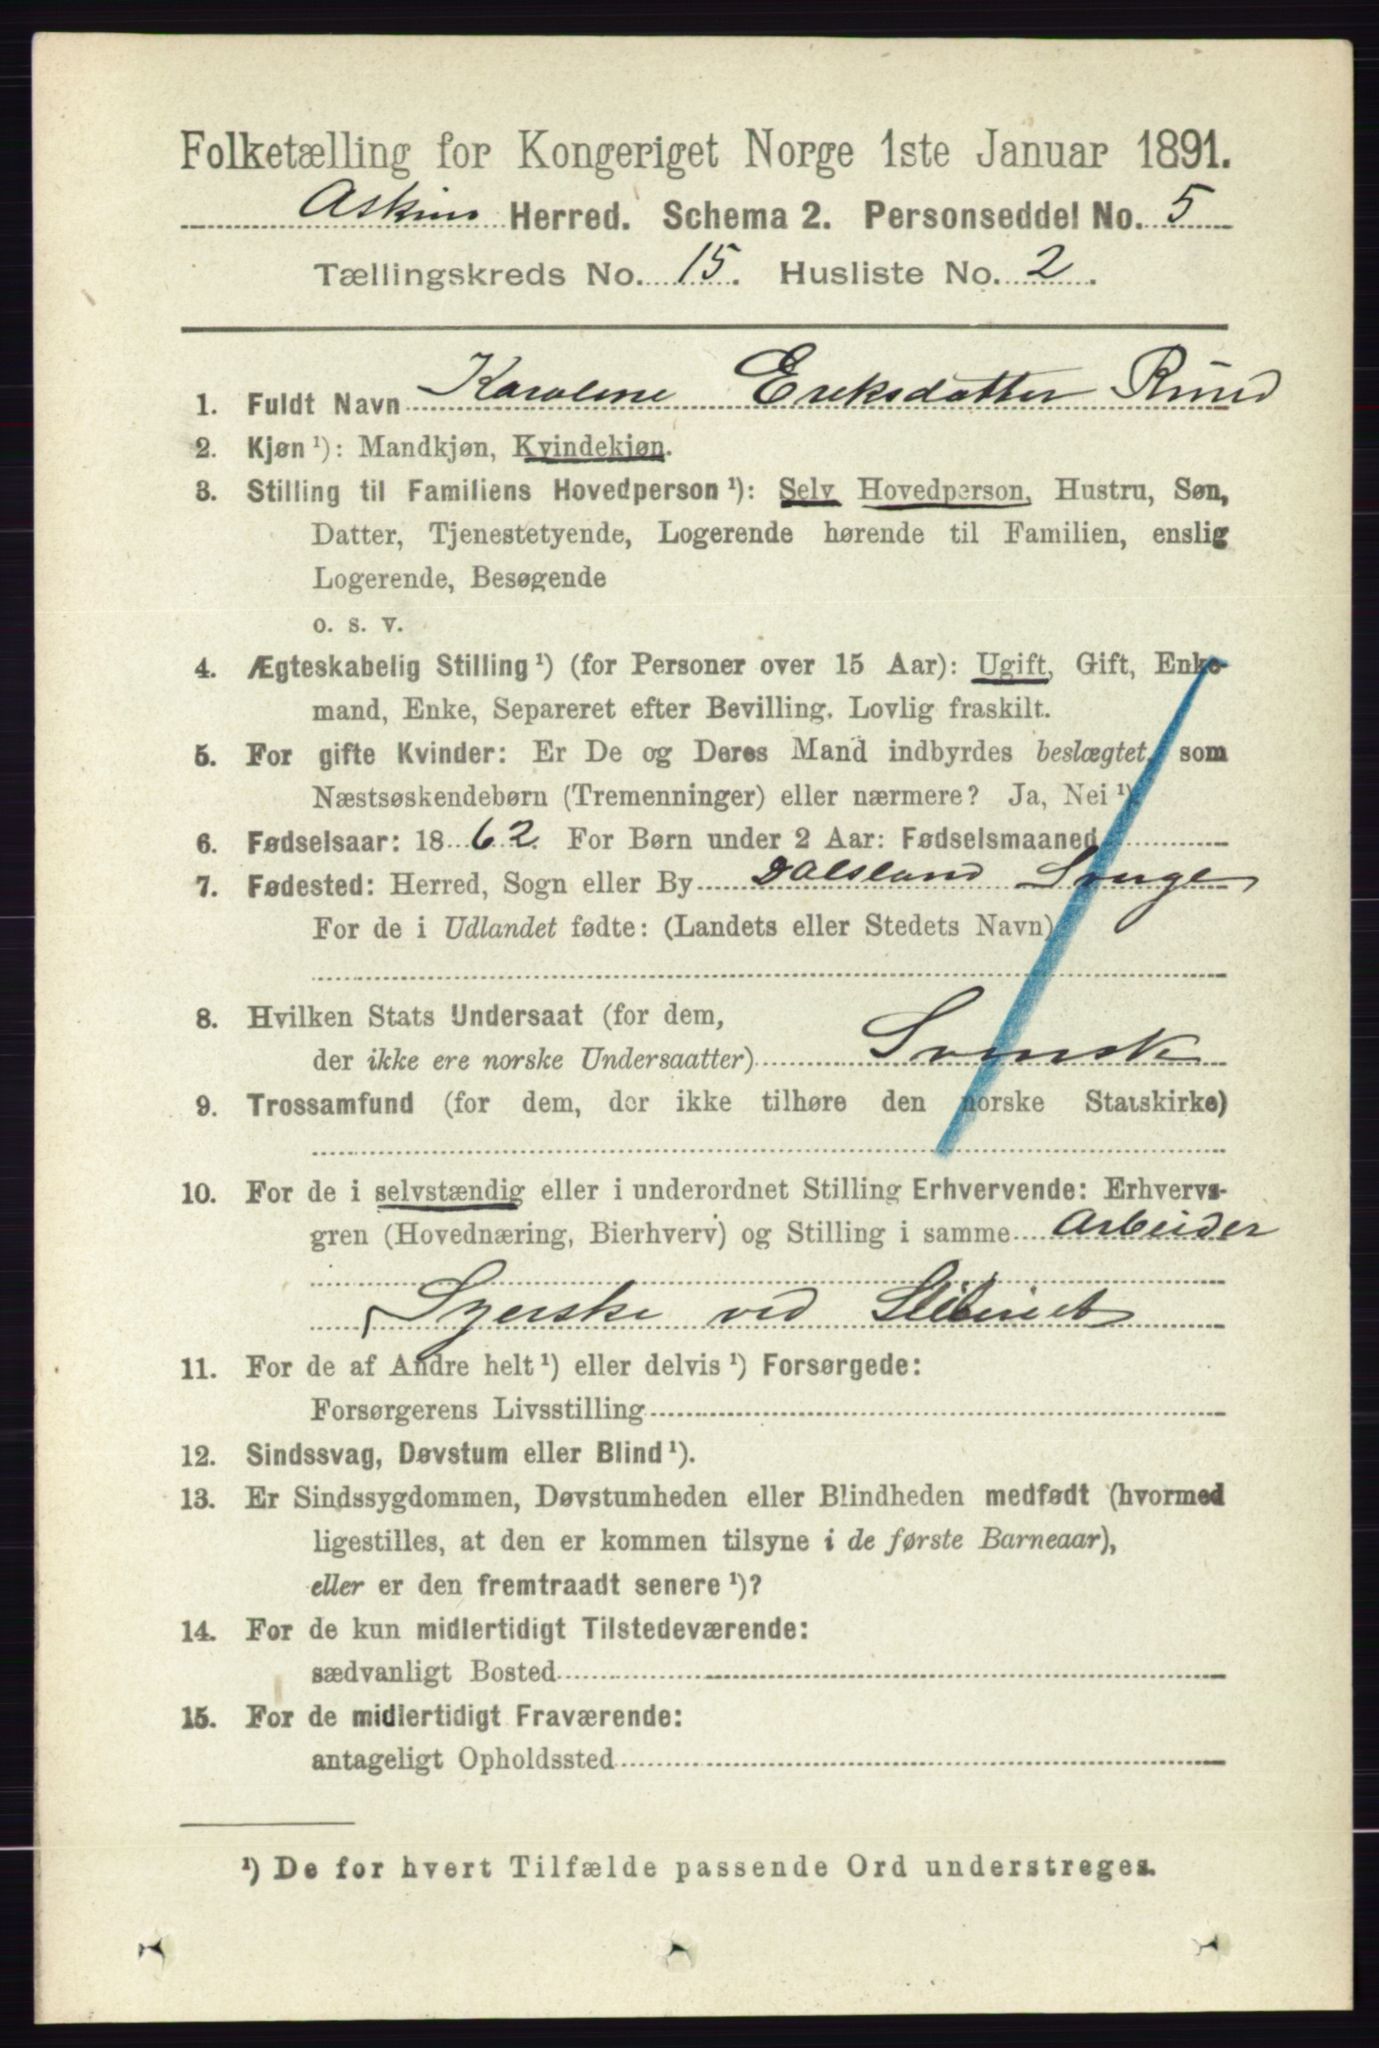 Folketælling for Kongeriget Norge 1ste Januar 1891.
Askim Herred. Schema 2. Personseddel No. 5
Tællingskreds No. 15. Husliste No. 2.
1. Fuldt Navn Karoline Eriksdatter Ruud
2. Kjøn ¹): Mandkjøn, Kvindekjøn.
3. Stilling til Familiens Hovedperson ¹): Selv Hovedperson, Hustru, Søn,
Datter, Tjenestetyende, Logerende hørende til Familien, enslig
Logerende, Besøgende
o. s. v.
4. Ægteskabelig Stilling ¹) (for Personer over 15 Aar): Ugift, Gift, Enke-
mand, Enke, Separeret efter Bevilling. Lovlig fraskilt.
5. For gifte Kvinder: Er De og Deres Mand indbyrdes beslægtet, som
Næstsøskendebørn (Tremenninger) eller nærmere? Ja, Nei ¹)
6. Fødselsaar: 1862. For Børn under 2 Aar: Fødselsmaaned
7. Fødested: Herred, Sogn eller By Dalsland
For de i Udlandet fødte: (Landets eller Stedets Navn)
8. Hvilken Stats Undersaat (for dem,
der ikke ere norske Undersaatter) Svensk
9. Trossamfund (for dem, der ikke tilhøre den norske Statskirke)
10. For de i selvstændig eller i underordnet Stilling Erhvervende: Erhvervs-
gren (Hovednæring, Bierhverv) og Stilling i samme Arbeider
Syerske ved Sliberiet
11. For de af Andre helt ¹) eller delvis ¹) Forsørgede:
Forsørgerens Livsstilling
12. Sindssvag, Døvstum eller Blind ¹).
13. Er Sindssygdommen, Døvstumheden eller Blindheden medfødt (hvormed
ligestilles, at den er kommen tilsyne i de første Barneaar),
eller er den fremtraadt senere ¹)?
14. For de kun midlertidigt Tilstedeværende:
sædvanligt Bosted
15. For de midlertidigt Fraværende:
antageligt Opholdssted
¹) De for hvert Tilfælde passende Ord understreges.